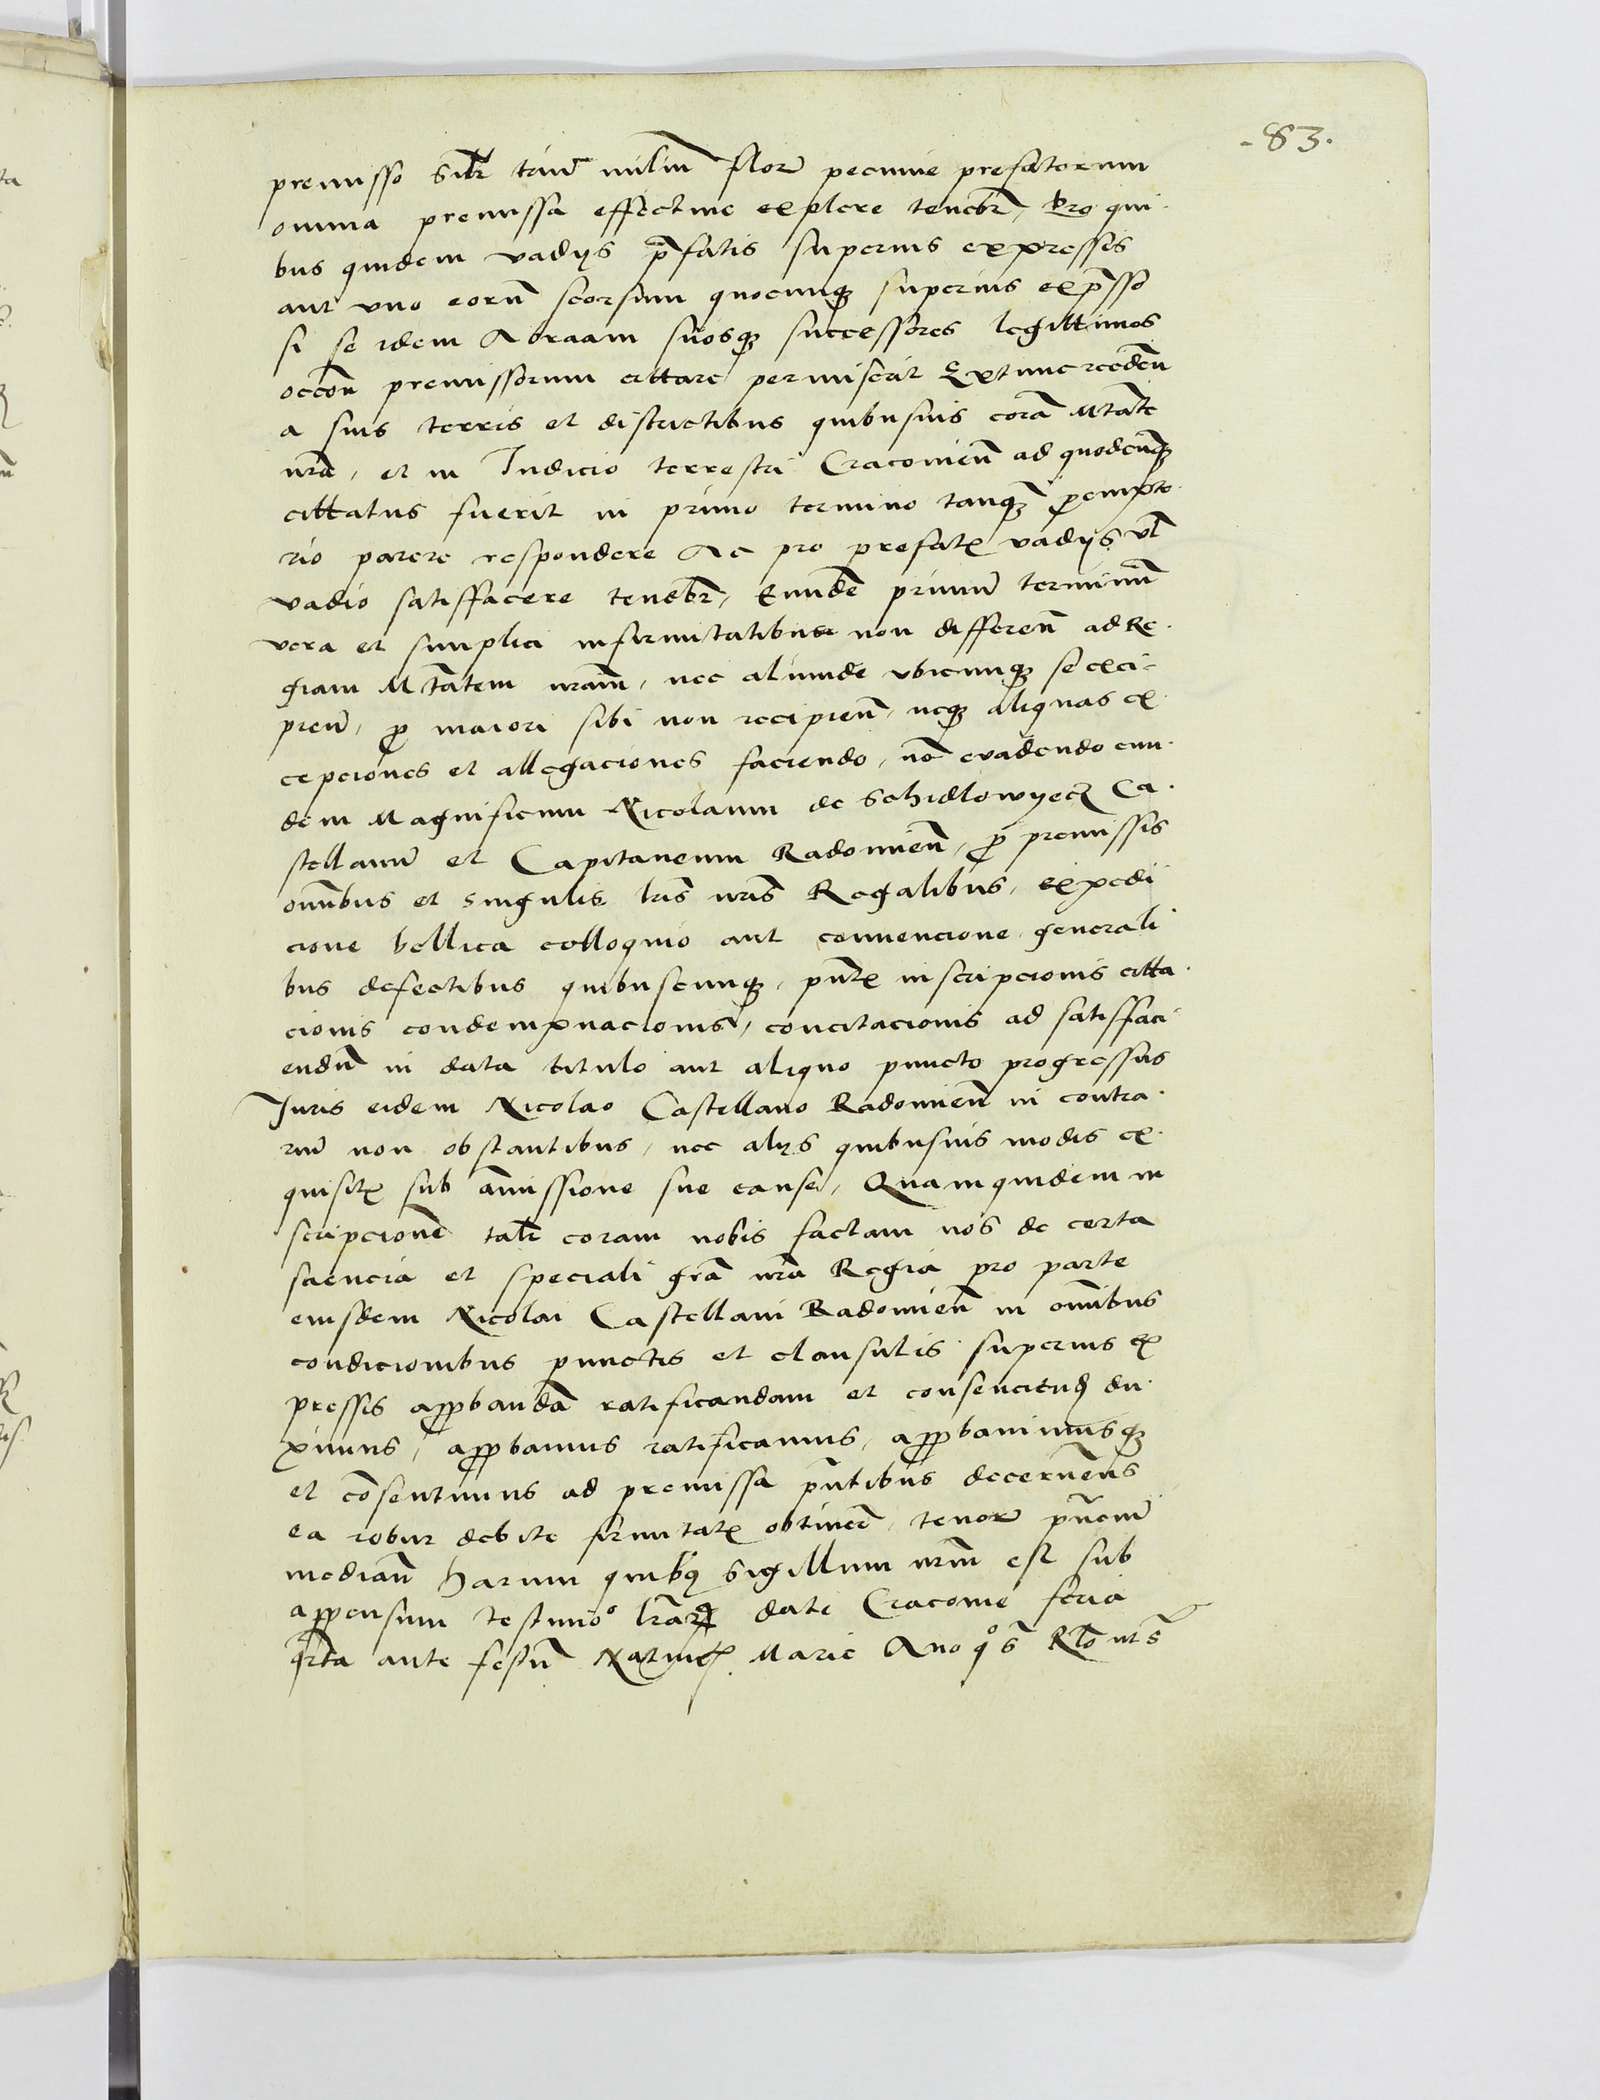 -83.
premisso silr triũ miliũ florẽ pecunie prefatorum
omnia premissa effectiue explere tenebr̃, Pro qui·
bus quidem vadijs p̃fatis superius expressis
aut vno eorũ seorsim quocunq3 superius exp̃sso
si se idem Abraam suosq3 successores legittimos
occoñ premissorum cittare permiserit Extunc recedeñ
a suis terris et districtibus quibusuis corã Mtãte
nrã, et in Iudicio terrestri Cracouieñ ad quodcũq3
cittatus fuerit in primo termino tanq̃3 ꝑempto·
rio parere respondere Ac pro prefatis vadijs vl̃
vadio satisffacere tenebr̃, Eundẽ primũ terminũ
vera et simplici infirmitatibus non differeñ ad Re·
giam Mtãtem nram̃, nec aliunde vbicunq3 se exci-
pieñ, ꝓ maiori sibi non recipieñ, neq3 aliquas ex·
cepciones et allegaciones faciendo, nõ euadendo eun·
dem Magnificum Nicolaum de Schidlowyecz Ca·
stellanũ et Capitaneum Radomieñ, ꝓ premissis
omñbus et singulis lr̃is nr̃is Regalibus, expedi
cione bellica colloquio aut conuencione generali
bus defectibus quibuscunq3, pñtis inscripcionis citta·
cionis condempnacionis, concitacionis ad satisffaci·
endũ in data titulo aut aliquo puncto progressus
Iuris eidem Nicolao Castellano Radomieñ in contra·
riũ non obstantibus, nec alijs quibusuis modis ex·
quisitis sub amissione sue cause, Quamquidem in
scripcionẽ talr coram nobis factam nos de certa
sciencia et speciali grã nrã Regia pro parte
eiusdem Nicolai Castellani Radomieñ in omñibus
condicionibus punctis et clausulis superius ex
pressis appꝛobandã ratificandam et consenciend̃ du·
ximus, appꝛobamus ratificamus, appꝛobauimusq3
et cõsentimus ad premissa pñtibus decerneñtes
ea robur debite firmitatis obtinere, tenore pñciũ
mediañ harum quibq3 Sigillum nrm̃ est sub
appensum testimoº lr̃ar̃ date Cracouie feria
q̃rta ante festũ Natiuitis Marie Anno qº s̃ Rº nr̃